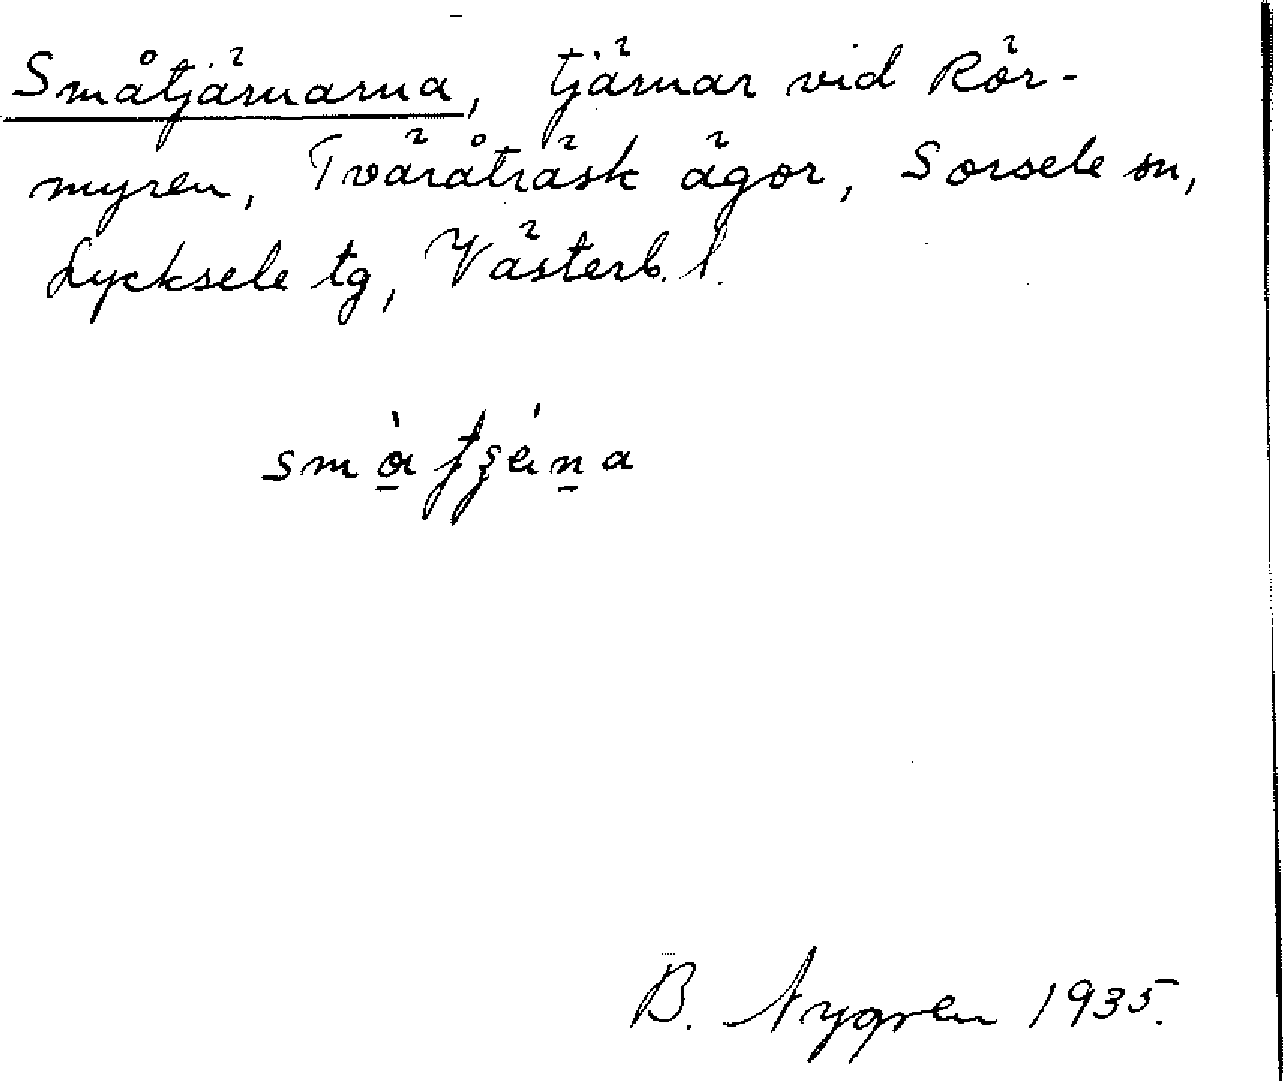 Småtjärnarna, tjärnar vid Rör-
myren, Tväråträsk ägor, Sorsele sn,
Lycksele tg, Västerb. l.
B. Nygren 1935.